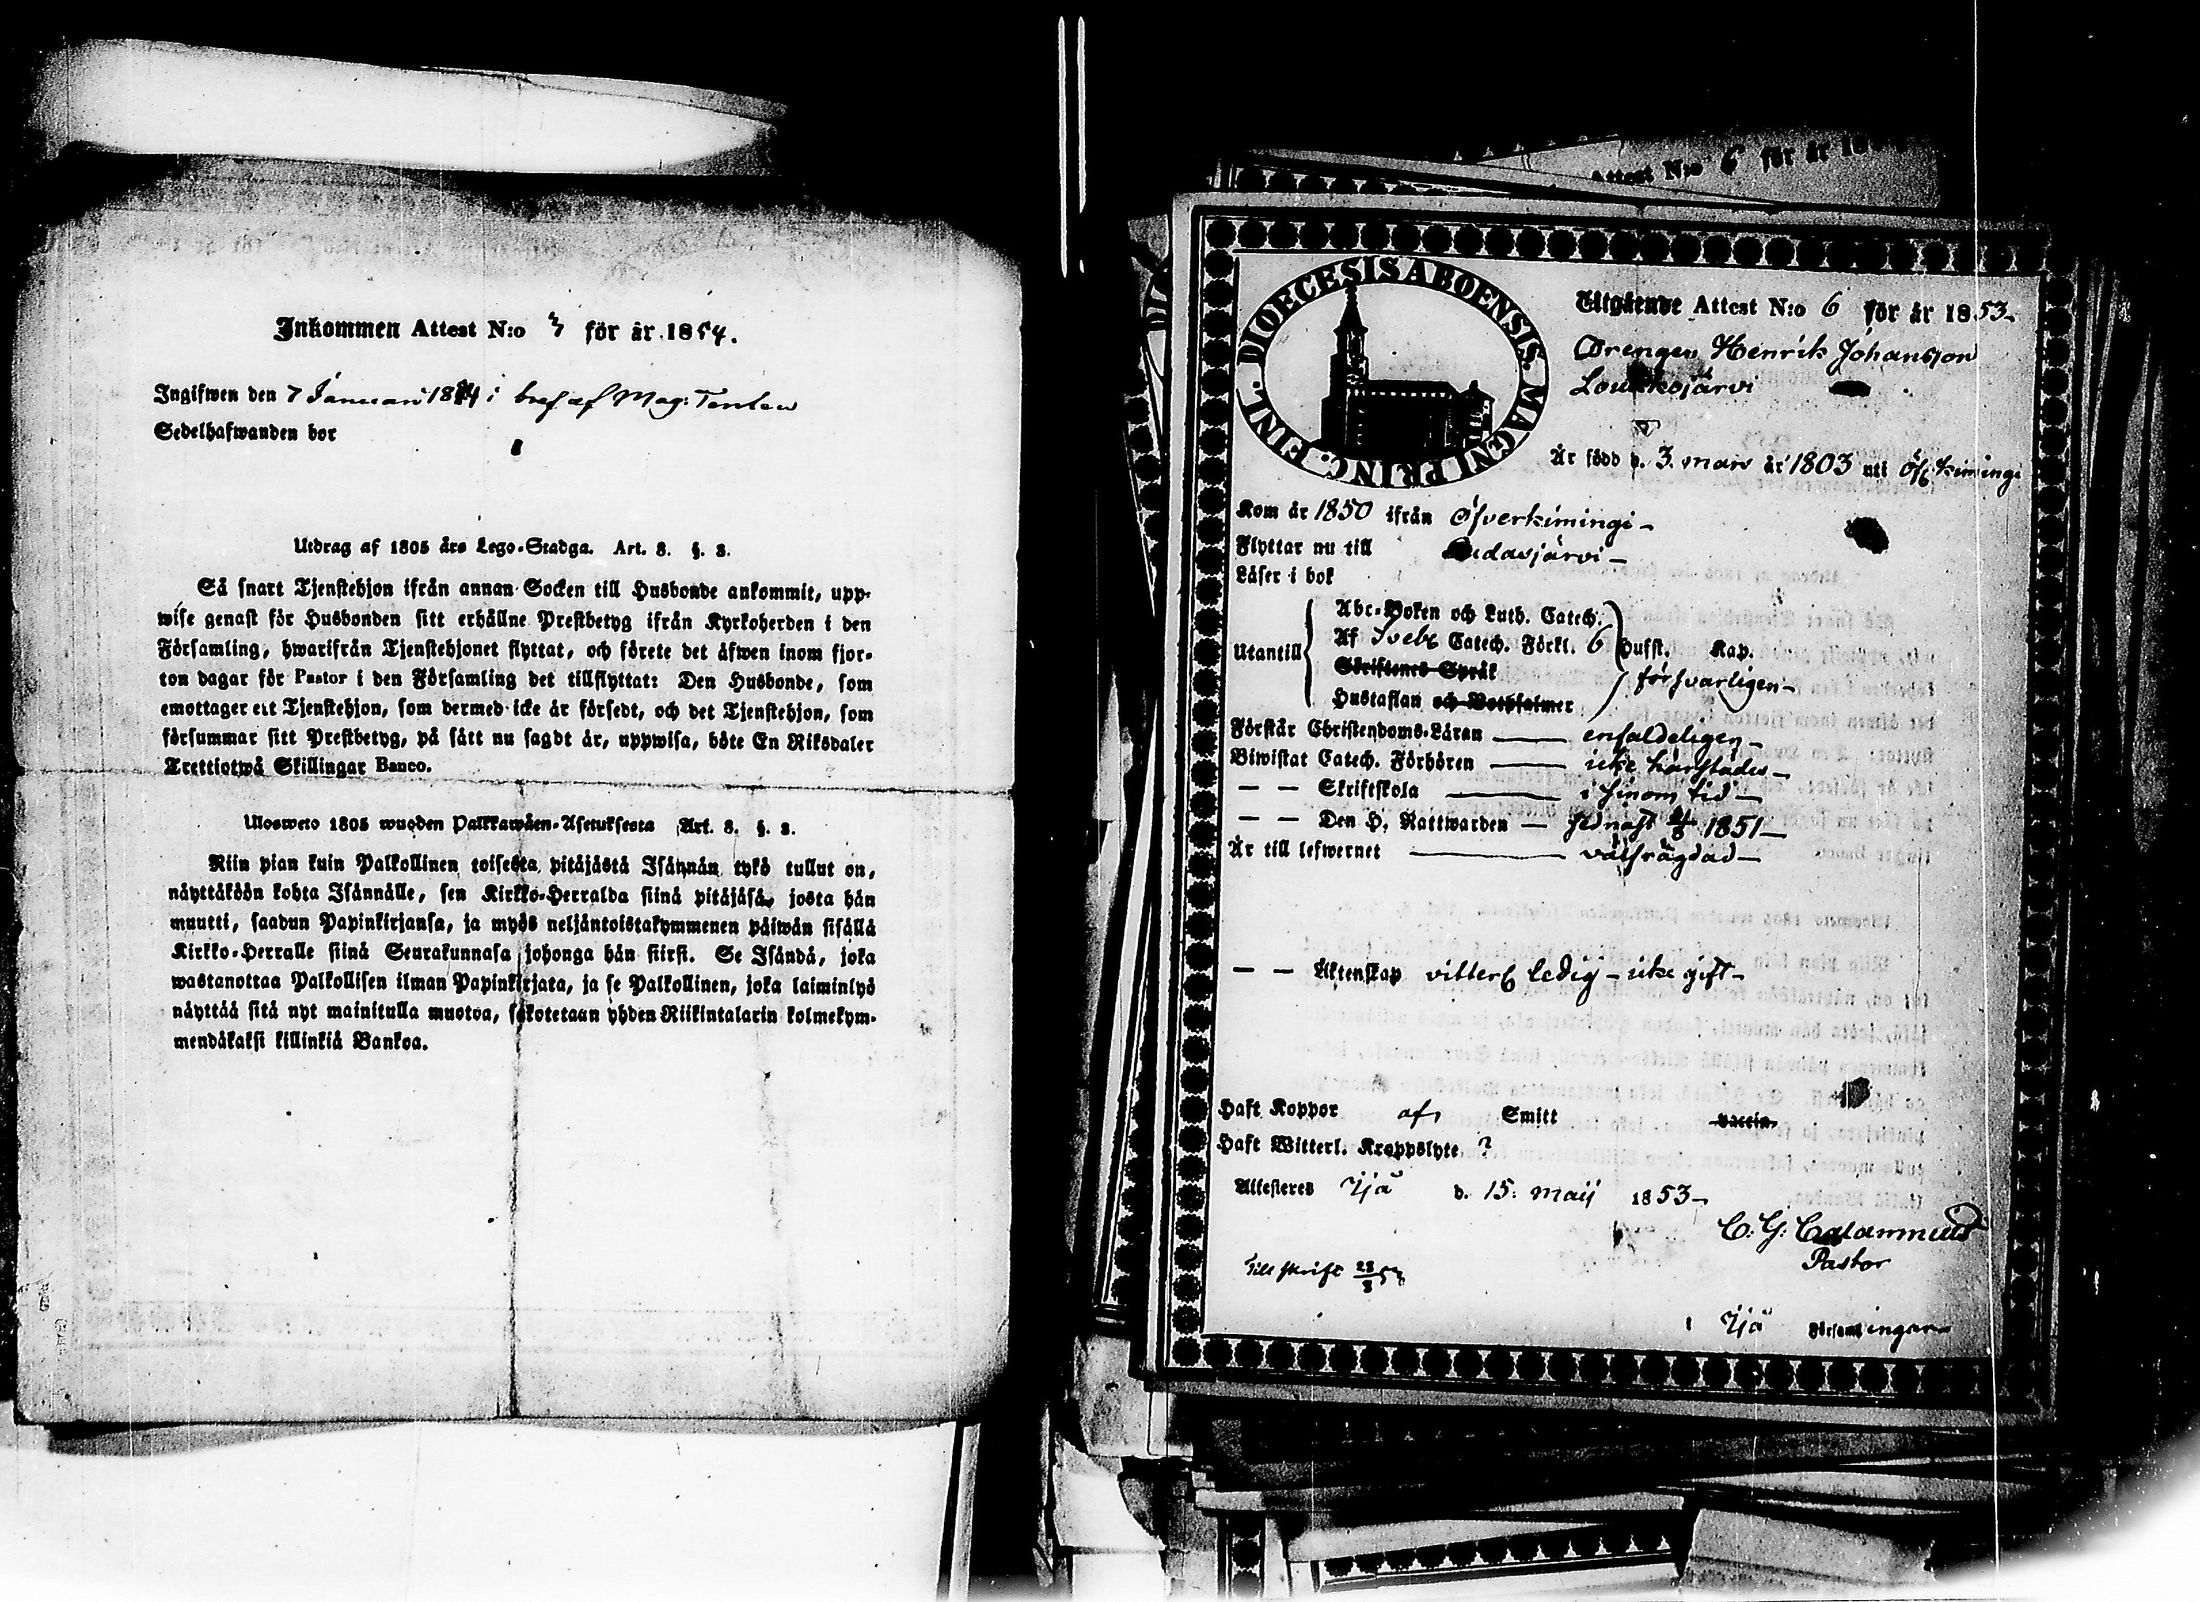 Inkommen Attest N:o 3 för år 1854.
Ingifwen den 7 Januari 1854 i bref af Mag: Tenlen
Sedelhafwanden bor
Utdrag af 1805 års Lego-Stadga. Art. 8. §. 8.
Så snart Tjenstehjon ifrån annan Socken till Husbonde ankommit, upp-
wise genast för Husbonden sitt erhållne Prestbetyg ifrån Kyrkoherden i den
Församling, hwarifrån Tjenstehjonet flyttat, och förete det äfwen inom fjor-
ton dagar för Pastor i den Församling det tillflyttat: Den Husbonde, som
emottager ett Tjenstehjon, som dermed icke är försedt, och det Tjenstehjon, som
försummar sitt Prestbetyg, på sätt nu sagdt är, uppwisa, böte En Riksdaler
Trettiotwå Skillingar Banco.
Ulosweto 1805 wuoden Palkkawäen-Asetuksesta Art. 8. §. 8.
Niin pian kuin Palkollinen toisesta pitäjästä Isännän tykö tullut on,
näyttäköön kohta Isännälle, sen Kirkko-Herralda siinä pitäjäsä, josta hän
muutti, saadun Papinkirjansa, ja myös neljäntoistakymmenen päiwän sisällä
Kirkko-Herralle siinä Seurakunnasa johonga hän siirsi. Se Isändä, joka
wastanottaa Palkollisen ilman Papinkirjata, ja se Palkollinen, joka laiminlyö
näyttää sitä nyt mainitulla muotoa, sakotetaan yhden Riikintalarin kolmekym-
mendäkaksi killinkiä Bankoa.
Attest N:o 6 för år
DIOECESIS ABOENSIS. MAGNI PRINC. FINL.
Utgående Attest N:o 6 för år 1853
Drengen Henrik Johansson
Loukkojärvi
Är född d. 3. mars år 1803 uti Öfkimingi
Kom år 1850 ifrån Öfverkimingi
Flyttar nu till Pudasjärvi
Läser i bok
Abc-Boken och Luth. Catech.
Utantill Af Sveb: Catech. Förkl. 6 Hufst. Kap.
Skriftenes Språk försvarligen
Hustaflan och Botpsalmer
Förstår Christendoms-Läran enfaldeligen
Biwistat Catech. Förhören icke härstädes
— — Skriftskola i sinom tid
— — Den H. Nattwarden sednast 1851
Är till lefwernet välfrägdad
— — Äktenskap vitterl ledig - icke gift
Haft Koppor af Smitt vaccin.
Haft Witterl. Kroppslyte ?
Attesteres Ijå d. 15. maij 1853
C. G. Calamnius
Pastor
Till skrift 23/3 53
i Ijå Församlingar